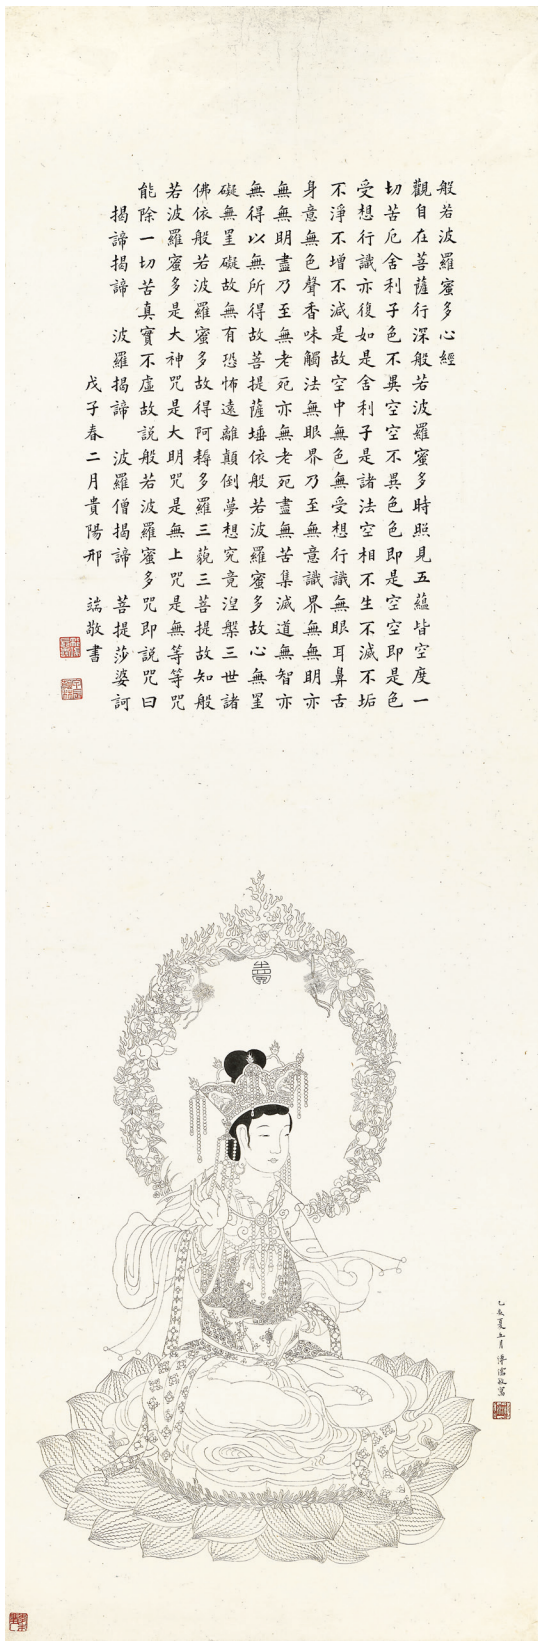 般若波羅蜜多心經
觀自在菩薩行深般若波羅蜜多時照見五蘊皆空度一
切苦厄舍利子色不異空空不異色色即是空空即是色
受想行識亦復如是舍利子是諸法空相不生不滅不垢
不淨不增不減是故空中無色無受想行識無眼耳鼻舌
身意無色聲香味觸法無眼界乃至無意識界無無明亦
無無明盡乃至無老死亦無老死盡無苦集滅道無智亦
無得以無所得故菩提薩埵依般若波羅蜜多故心無罣
礙無罣礙故無有恐怖遠離顛倒夢想究竟涅槃三世諸
佛依般若波羅蜜多故得阿耨多羅三藐三菩提故知般
若波羅蜜多是大神咒是大明咒是無上咒是無等等咒
能除一切苦真實不虛故說般若波羅蜜多咒即說咒曰
揭諦揭諦 波羅揭諦 波羅僧揭諦 菩提莎婆訶
戊子春二月貴陽邢 端敬書
乙亥夏五月溥儒敬寫